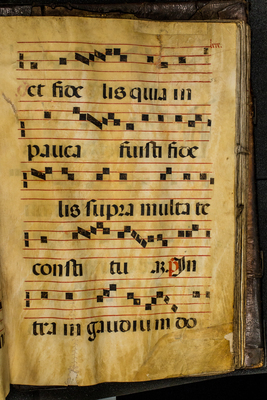 et fide lis quia in
pauca fuisti fide
lis supra multa te
consti tu In
tra in gaudium do